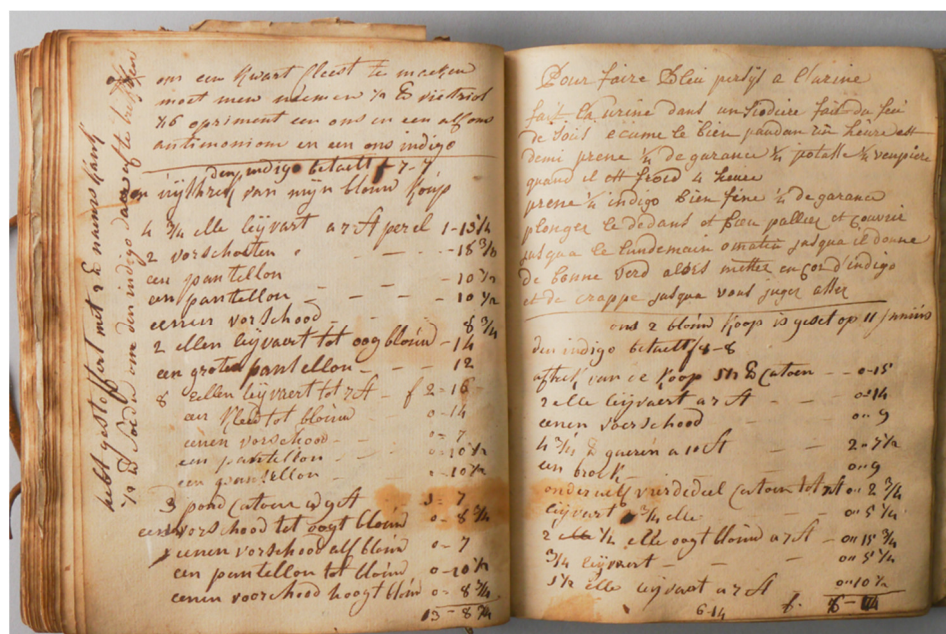 om een kwart fleest te maeken
moet men neemen ½ lb vietriol
opriment een ons en een alf ons
antimonium en een ons indigo
den indigo betaelt f 7-7
van mijn blouw Kuip
4 3/4 elle lijvart a 7 st per el 1-13 1/4
2 vorschooten - 18 3/4
een pantellon - 10 1/2
een pantellon - 10 1/2
eenen vorschood - 8 3/4
2 ellen lijvaert tot oogblouw - 14
een groten pantellon - 12
8 ellen lijvaert tot 7 st - f 2-16
een kleet tot blouw 0-14
eenen vorschood - 0-7
een pantellon 0-10 1/2
een pantellon - 10 1/2
3 pond catoen a 9 st 1-7
een vorschood tot oogt blouw 0-8 3/4
eenen vorschood alf blouw 0-7
een pantellon tot blouw 0-10 1/2
eenen voorschood hoogt blouw 0-8 3/4
13-8 3/4
hebt gestoffert met 2
½ lb Soda om den indigo daer
Pour faire Bleu persijt a l'urine
fait la urine dans un fait du feu
de bois ecume le bien pandan un heure et
demi prene ¼ de garance ¼ potasse ¼
quand il est froid 4 heure
prene ¼ indigo bien fine ¼ de garance
plonger le dedans et bien pallier et couvrir
jusqua le lundemain matin jusqua il donne
de bonne verd alors mettee encor d'indigo
et de crappe jusqua vous juger asser
ons 2 blouw Koop is geset op 11 Junius
den indigo betaelt f 8-8
aftrek van de Koop lb Catoen - 0-15
2 elle lijvaert a 7 st 0-14
eenen voorschood 0-9
4 lb a 10 st 2-7 1/2
een brock 0-9
onderhelf vierdedeel Catoen tot 0-2 3/4
lijvart 3/4 elle 0-5 1/4
2 1/4 elle oogt blouw a 7 st - 0-15 3/4
3/4 lijvaert 0-5 1/4
1 1/2 elle lijvaert a 7 st 0-10 1/2
6-14 f.